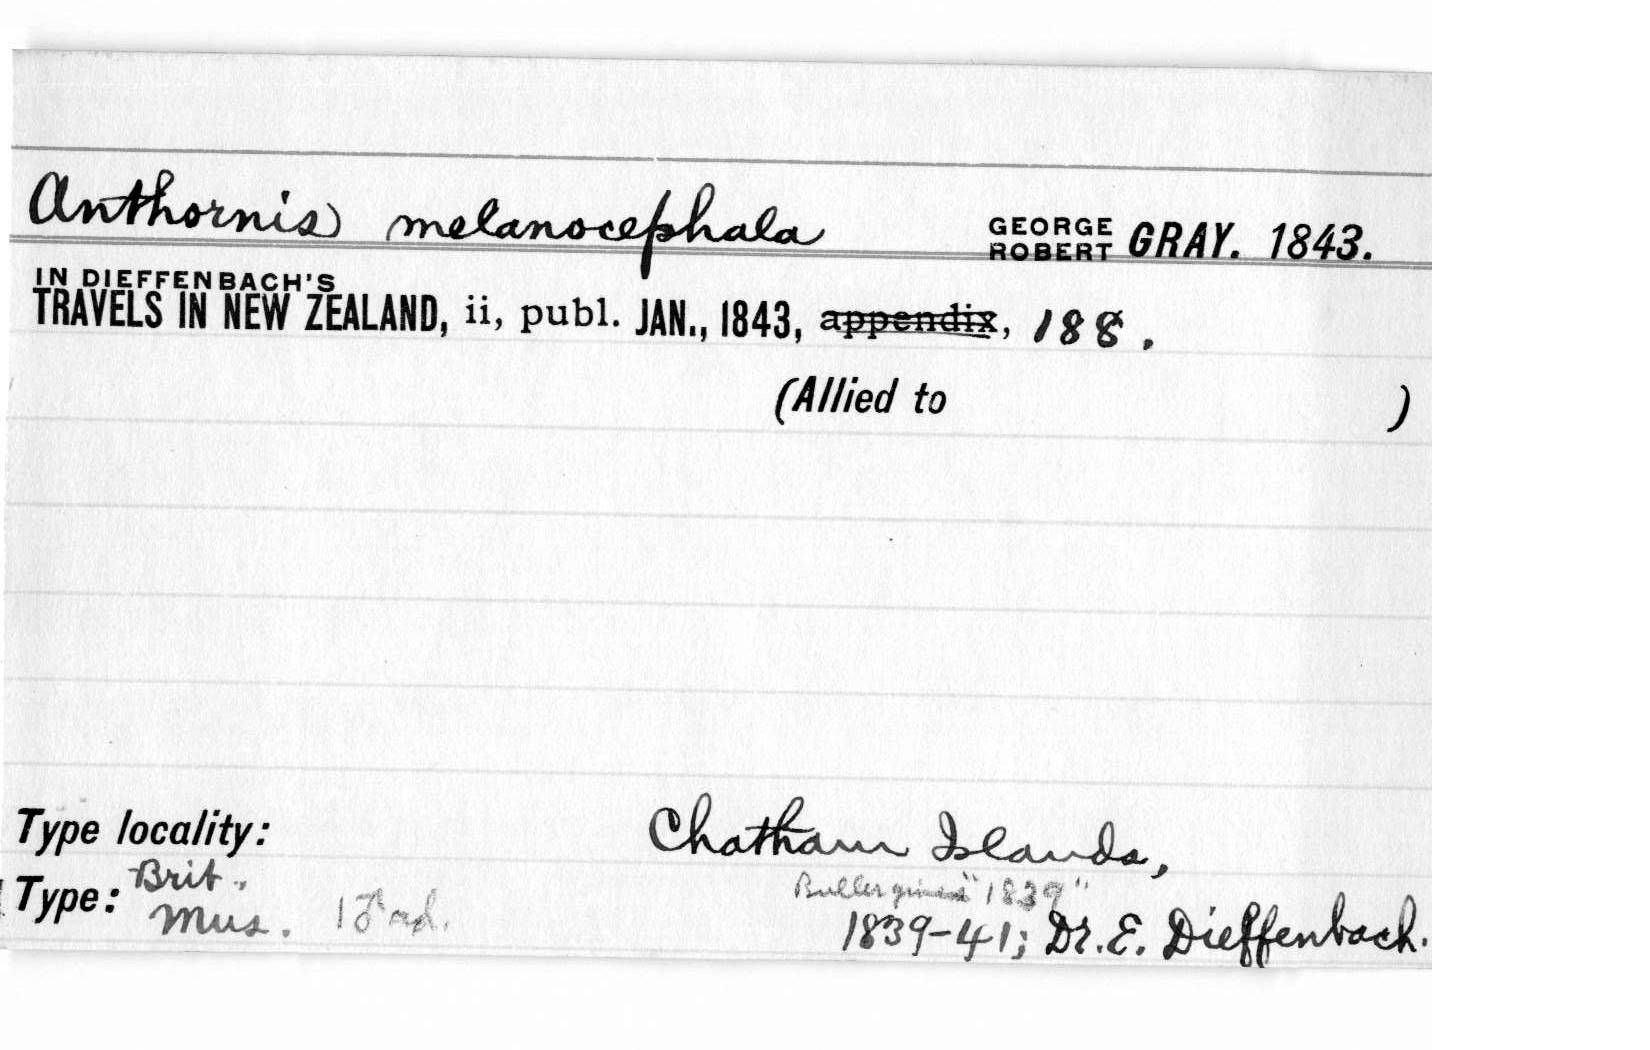 Anthornis melanocephala GEORGE ROBERT GRAY. 1843.
IN DIEFFENBACH'S
TRAVELS IN NEW ZEALAND, ii, publ. JAN., 1843, appendix, 188.
(Allied to )
Type locality: Chatham Islands,
Type: Brit. Mus. 1♂ ad. Buller gives "1839"
1839-41; Dr. E. Dieffenbach.